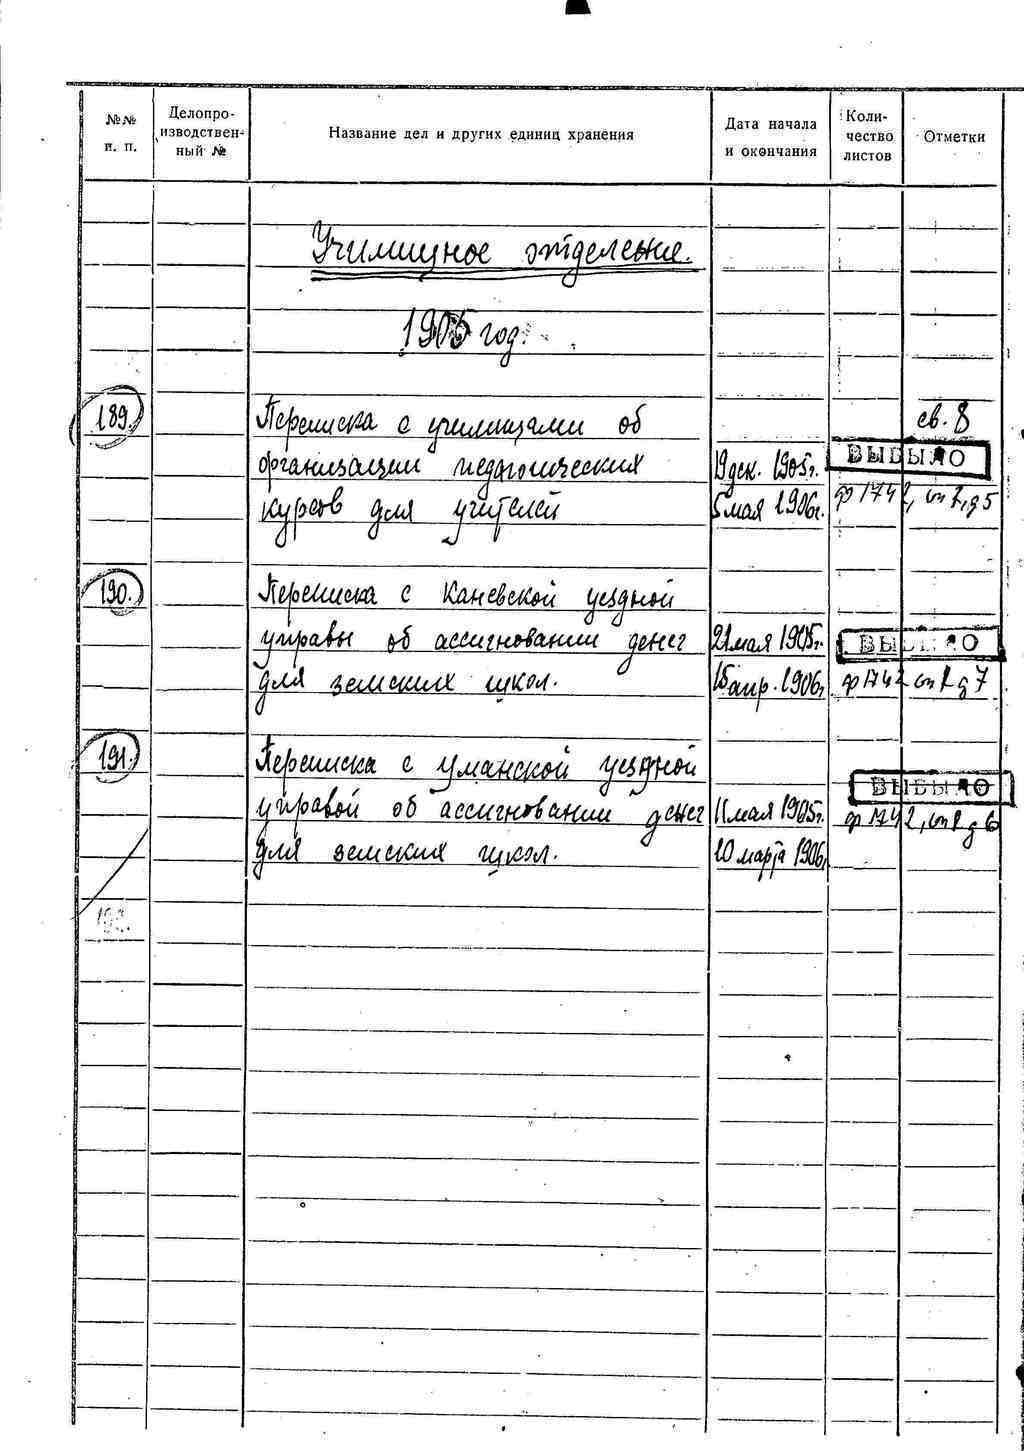 №№ п. п.
Делопро-
изводствен-
ный №
Название дел и других единиц хранения
Дата начала
и окончания
Коли-
чество
листов
Отметки
Училищное отделение.
1905 год.
189. Переписка с училищами об св. 8
организации педагогических 19 дек. 1905г. ВЫБЫЛО
курсов для учителей 5 мая 1906г. ф 1742, оп 1, д 5
190. Переписка с Каневской уездной
управы об ассигновании денег 21 мая 1905г. ВЫБЫЛО
для земских школ. 15 апр. 1906г ф 1742 оп 1 д 7
191. Переписка с Уманской уездной ВЫБЫЛО
управой об ассигновании денег 11 мая 1905г. ф 1742, оп 1 д 6
для земских школ. 10 марта 1906г